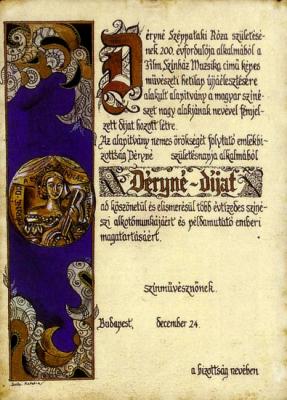 Déryné Széppataki Róza születésé-
nek 200. évfordulója alkalmából a
Film Színház Muzsika című képes
művészeti hetilap újjáélesztésére
alakult alapítvány a magyar színé-
szet nagy alakjának nevével fémjel-
zett díjat hozott létre.
Az alapítvány nemes örökségét folytató emlékbi-
zottság Déryné születésnapja alkalmából
Déryné-díjat
ad köszönetül és elismerésül több évtizedes színé-
szi alkotómunkájáért és példamutató emberi
magatartásáért.
színművésznőnek.
Budapest, december 24.
a bizottság nevében